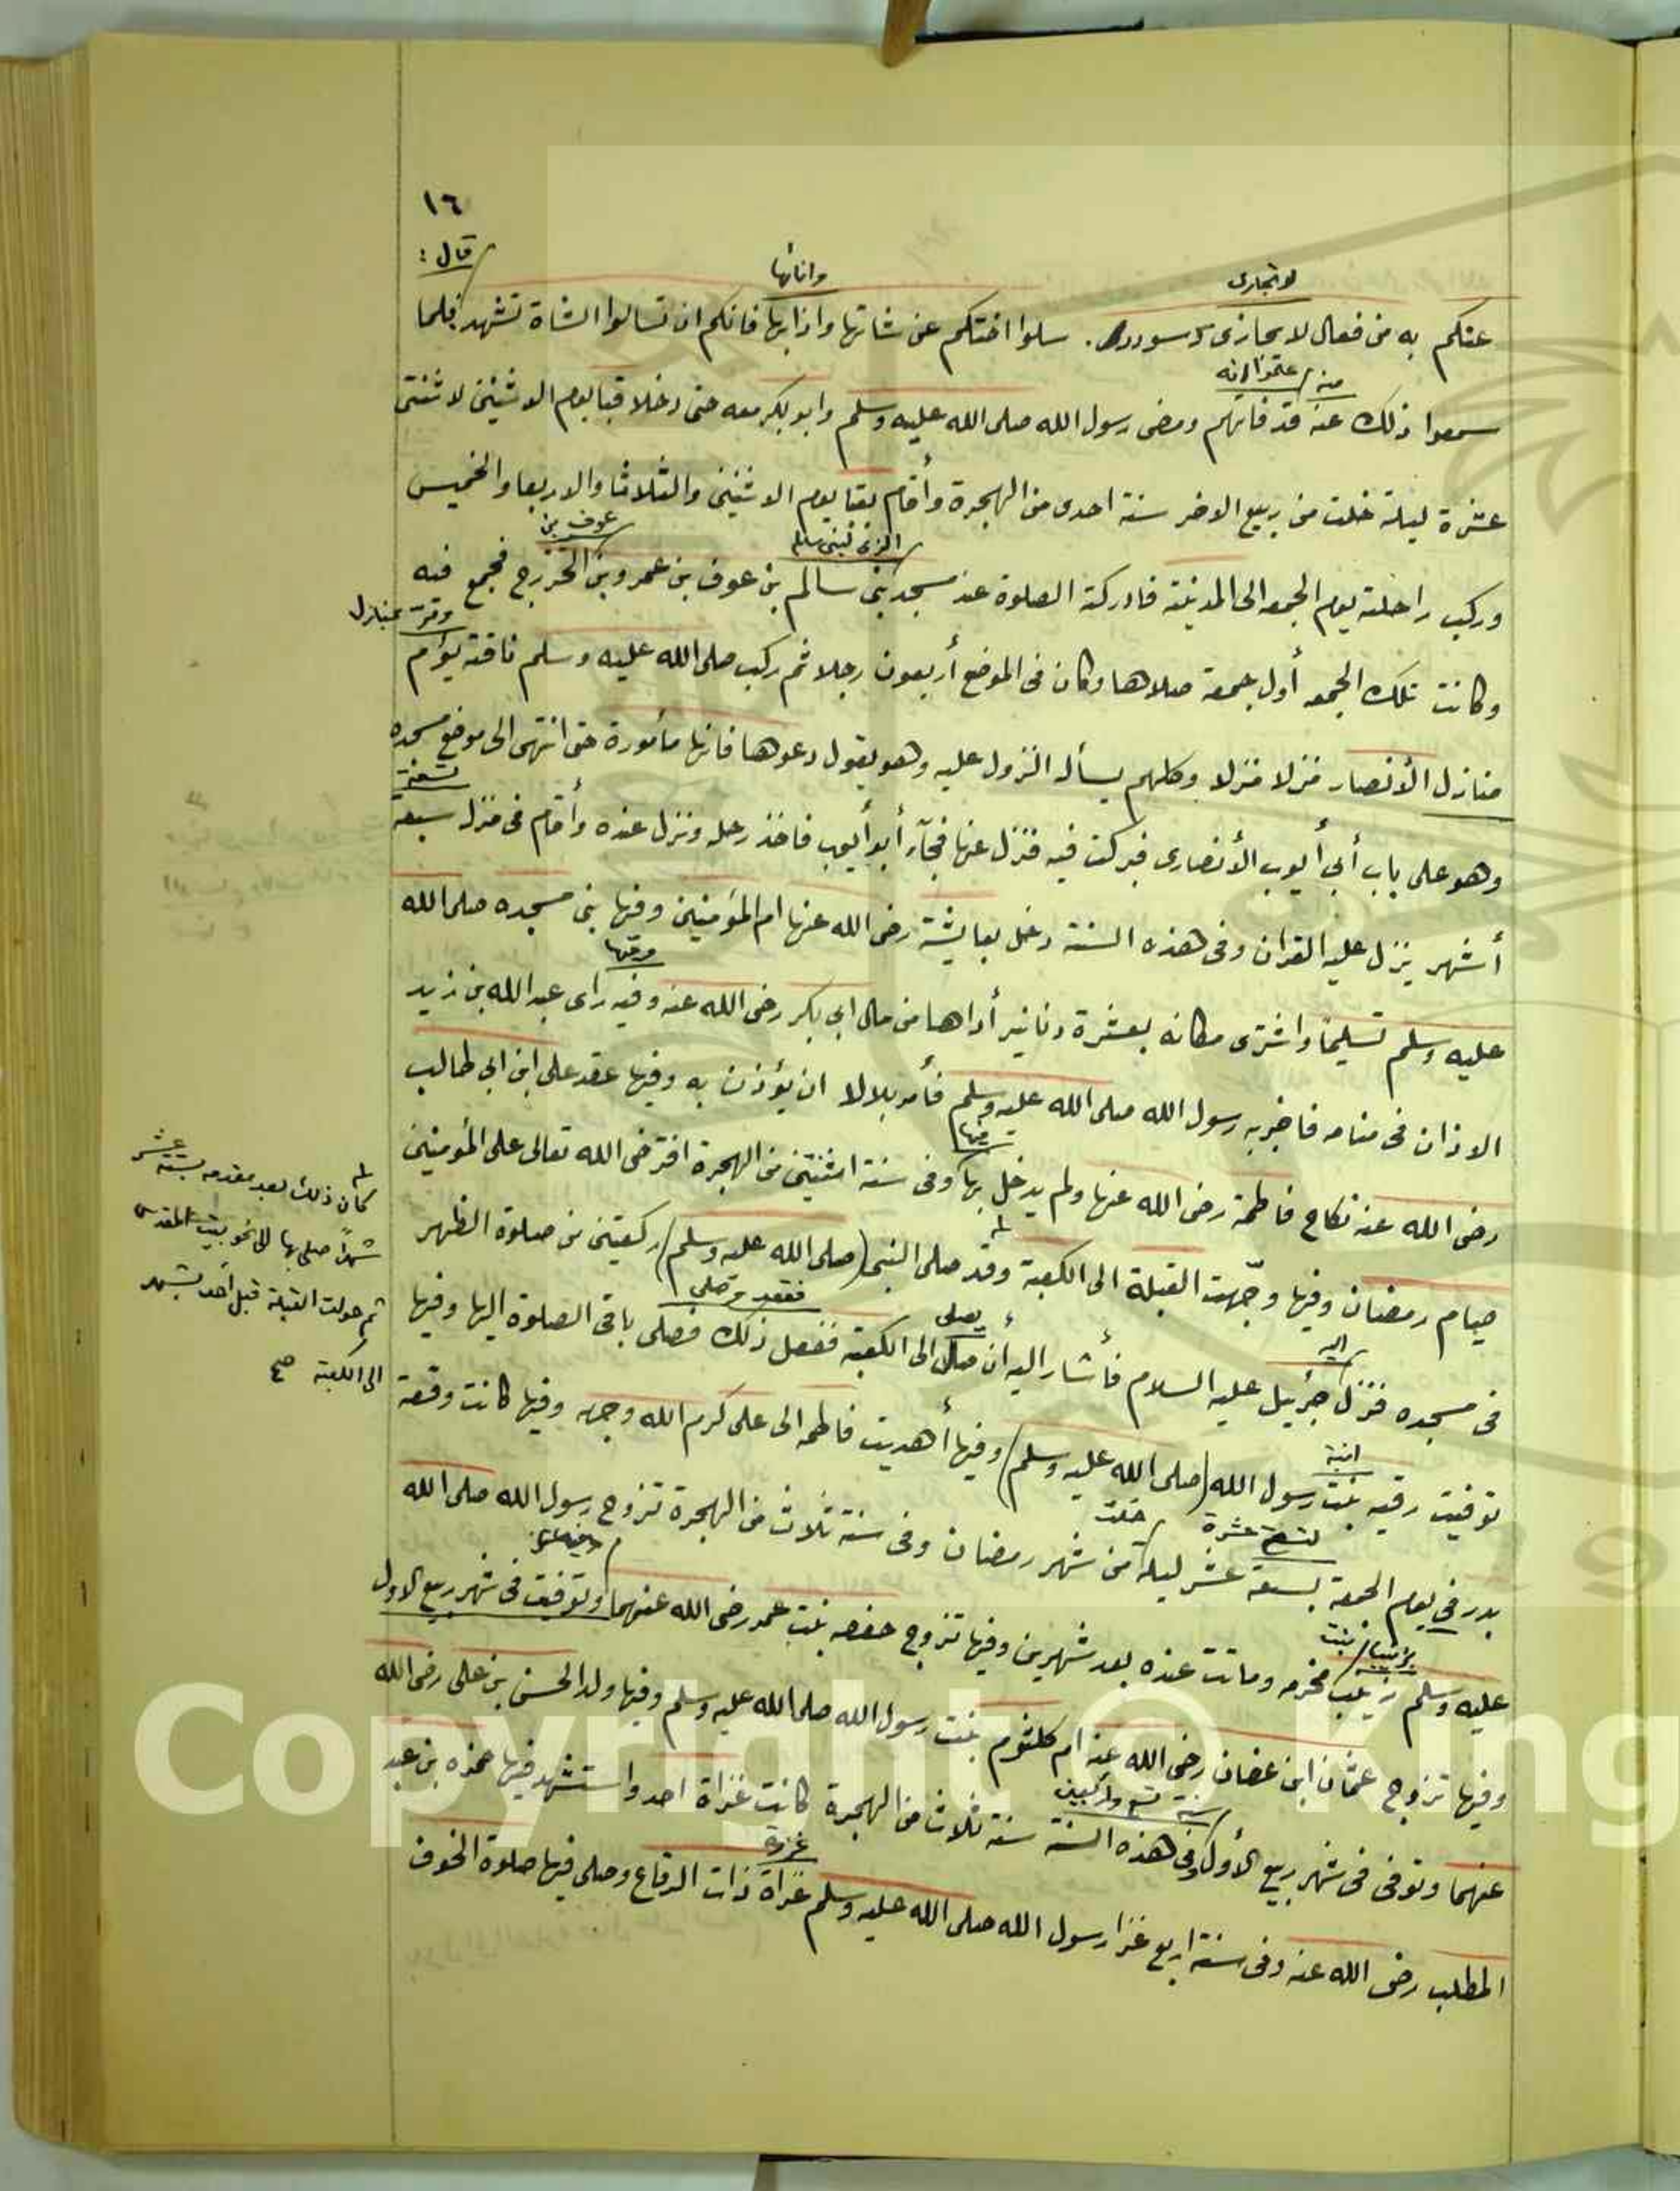 ١٦
قال :
لا تجازى
وانائها
عنكم به من فعال لا يجازى وسودد . سلوا اختكم عن شاتها واناءها فانكم ان تسالوا الشاة تشهد فلما
منه / علموا انه
سمعوا ذلك عنه قد فاتهم ومضى رسول الله صلى الله عليه وسلم وابو بكر معه حتى دخلا قبا يوم الاثنين لاثنتى
عشرة ليلة خلت من ربيع الاخر سنة احدى من الهجرة وأقام بقبا يوم الاثنين والثلاثا والاربعا والخميس
الذى لبنى سالم
عوف بن
وركب راحلته يوم الجمعه الى المدينة فادركته الصلوة عند مسجد بنى سالم بن عوف بن عمرو بن الخزرج فجمع فيه
ومرت بمنازل
وكانت تلك الجمعه أول جمعة صلاها وكان فى الموضع أربعون رجلا ثم ركب صلى الله عليه وسلم ناقته يؤم
منازل الأنصار منزلا منزلا وكلهم يسأله النزول عليه وهو يقول دعوها فانها مأمورة حتى انتهى الى موضع مسجده
تسعة
وهو على باب أبي أيوب الأنصارى فبركت فيه فنزل عنها فجآء أبو أيوب فاخذ رحله ونزل عنده وأقام فى منزله سبعة
أشهر ينزل عليه القران وفى هذه السنة دخل بعايشة رضى الله عنها ام المؤمنين وفيها بنى مسجده صلى الله
وفيها
عليه وسلم تسليمًا واشترى مكانه بعشرة دنانير أداها من مال ابي بكر رضى الله عنه وفيه راى عبد الله بن زيد
الاذان فى منامه فاخبر به رسول الله صلى الله عليه وسلم فأمر بلالا ان يؤذن به وفيها عقد على ابن ابي طالب
فيها
رضى الله عنه نكاح فاطمة رضى الله عنها ولم يدخل بها وفى سنة اثنتين من الهجرة افترض الله تعالى على المؤمنين
صيام رمضان وفيها وجّهت القبلة الى الكعبة وقد صلى النبى (صلى الله عليه وسلم) ركعتين من صلوة الظهر
كان ذلك بعد مقدمه بستة عشر
شهرًا صلى بها الى نحو بيت المقدس
ثم حولت القبلة قبل أحد بشهر
الى الكعبة صح
اليه
يصلى
ففعل وصلى
فى مسجده فنزل جبرئيل عليه السلام فأشار اليه أن صل الى الكعبة ففعل ذلك فصلى باقى الصلوة اليها وفيها
ابنة
توفيت رقيه بنت رسول الله (صلى الله عليه وسلم) وفيها أهديت فاطمه الى على كرم الله وجهه وفيها كانت وقعة
لتسع عشرة
خلت
بدر فى يوم الجمعة بسبعة عشر ليلة من شهر رمضان وفى سنة ثلاث من الهجرة تزوج رسول الله صلى الله
بنت
عليه وسلم زينب مخرمه وماتت عنده بعد شهرين وفيها تزوج حفصه بنت عمر رضى الله عنهما وتوفيت فى شهر ربيع الاول
وفيها تزوج عثمان ابن عفان رضى الله عنه ام كلثوم بنت رسول الله صلى الله عليه وسلم وفيها ولد الحسن بن على رضى الله
سنة تسع واربعين
عنهما وتوفى فى شهر ربيع الأول وفى هذه السنة سنة ثلاث من الهجرة كانت غزاة احد واستشهد فيها حمزه بن عبد
غزوة
المطلب رضى الله عنه وفى سنة اربع غزا رسول الله صلى الله عليه وسلم غزاة ذات الرقاع وصلى فيها صلوة الخوف
Copyright © King